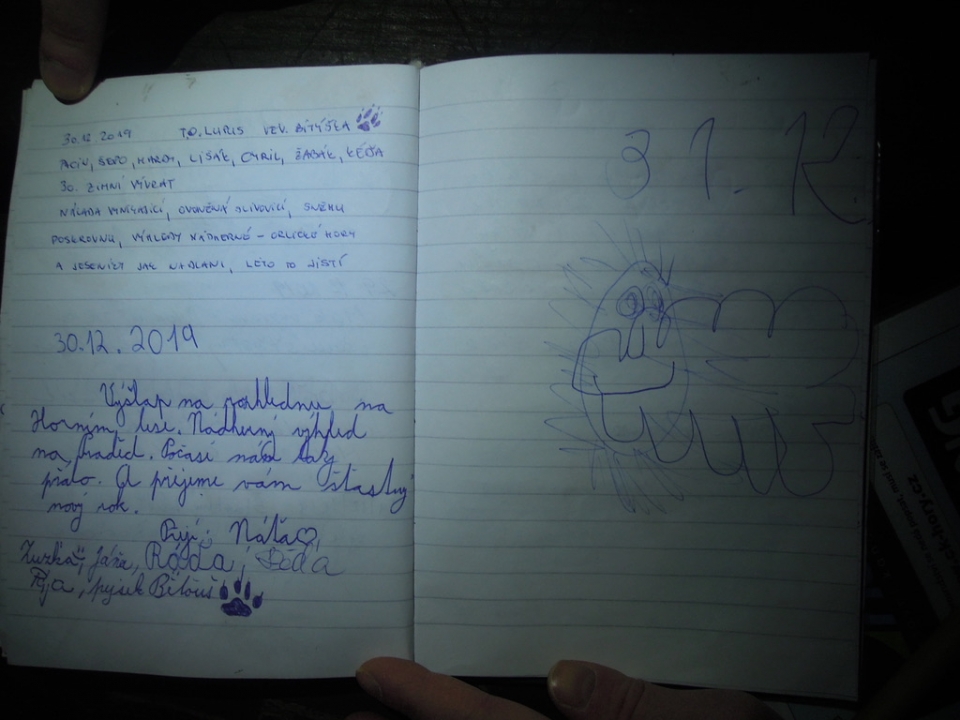 30.12.2019 T.O. LUPUS VEV. BÍTÝŠKA
PACIN, ŠEDO, HARDY, LIŠÁK, CYRIL, ŽABÁK, KÉĎA
30. ZIMNÍ VÝVRAT
NÁLADA VYNIKAJÍCÍ, OVONĚNÁ SLIVOVICÍ, SNĚHU
POSKROVNU, VÝHLEDY NÁDHERNÉ - ORLICKÉ HORY
A JESENÍKY JAK NA DLANI, LÉTO TO JISTÍ
30.12.2019
Výšlap na rozhlednu na
Horním lese. Nádherný výhled
na Praděd. Počasí nám taky
přálo. A přejeme vám šťastný
nový rok.
Přejí: Náťa,
Zuzka, Jáňa, Rósťa,
pejsek
31.12
www.